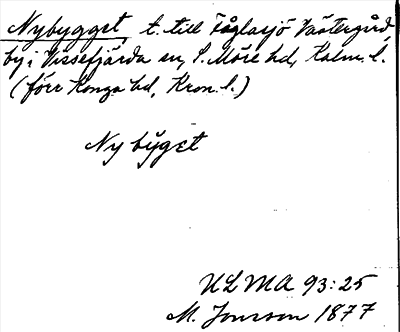 Nybygget t. till Fåglasjö Västergård,
by i Vissefjärda sn, S. Möre hd, Kalm. l.
(förr Konga hd, Kron. l.)
Nybýget
ULMA 93:25
M. Jonsson 1877